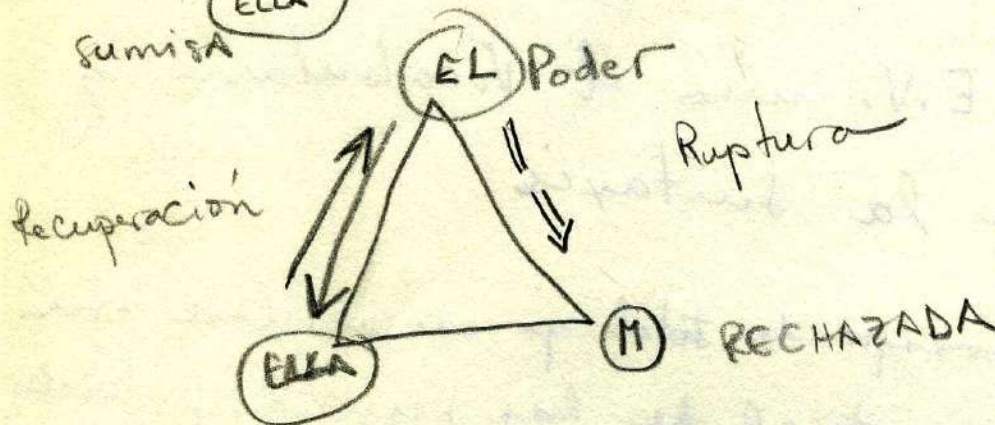 ELLA
sumisA
EL Poder
Ruptura
Recuperación
ELLA
M RECHAZADA
E.V.
la